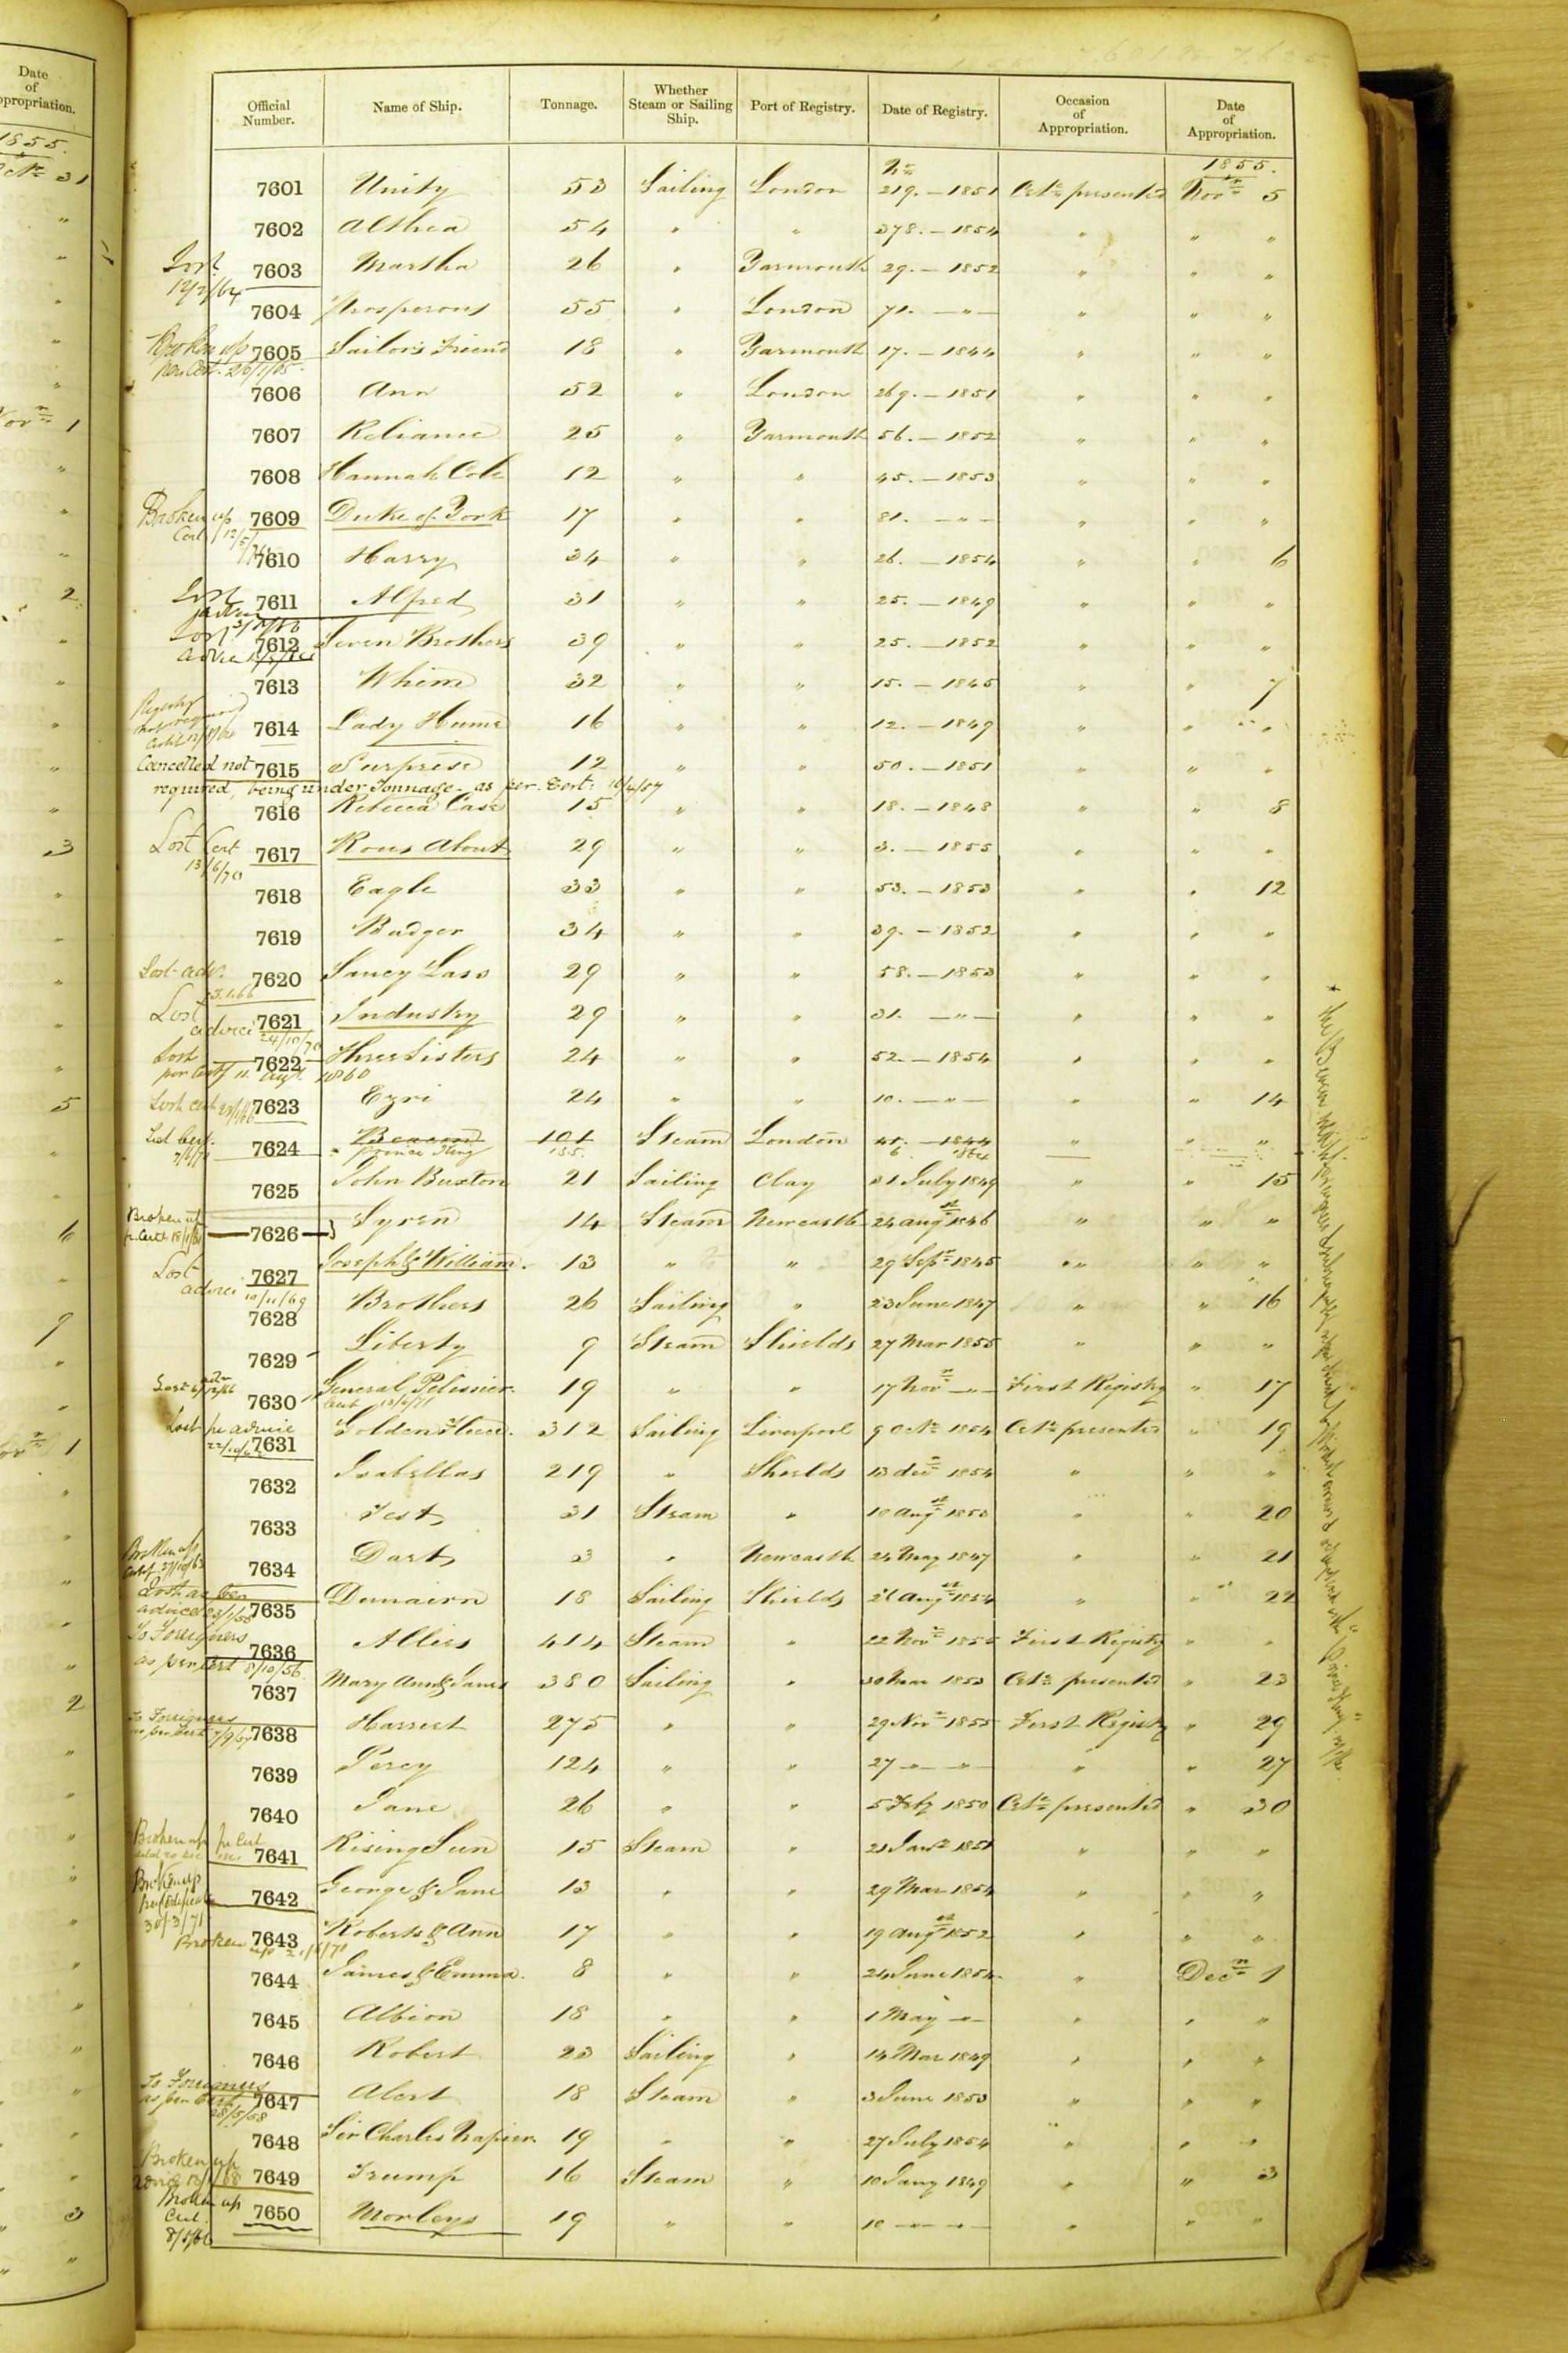 Date of Appropriation.
1855.
Official Number. Name of Ship. Tonnage. Whether Steam or Sailing Ship. Port of Registry. Date of Registry. Occasion of Appropriation. Date of Appropriation.
No 1855.
7601 Unity 53 Sailing London 219. — 1851 Certe presented Novr 5
7602 Althea 54 " " 378. — 1854 " " "
Lost 7603 Martha 26 " Yarmouth 29. — 1852 " " "
7604 Prosperous 55 " London 71. — " — " " "
Broken up 7605 Sailors Friend 18 " Yarmouth 17. — 1844 " " "
per Cert.
7606 Ann 52 " London 269. — 1851 " " "
7607 Reliance 25 " Yarmouth 56. — 1852 " " "
7608 Hannah Cole 12 " " 45. — 1853 " " "
Broken up 7609 Duke of York 17 " " 81. — " — " " "
Cert
7610 Harry 34 " " 26. — 1854 " " 6
Lost 7611 Alfred 31 " " 25. — 1849 " " "
Lost 7612 Seven Brothers 39 " " 25. — 1852 " " "
advice
7613 Whim 32 " " 15. — 1845 " " 7
Registry not required 7614 Lady Hume 16 " " 12. — 1849 " " "
Cancelled not 7615 Surprise 12 " " 50. — 1851 " " "
required, being under Tonnage - as per Cert: 16/4/57
7616 Rebecca Case 15 " " 18. — 1848 " " 8
Lost Cert 7617 Rous About 29 " " 3. — 1855 " " "
13/6/70
7618 Eagle 33 " " 53. — 1853 " " 12
7619 Badger 34 " " 39. — 1852 " " "
Lost adv. 7620 Saucy Lass 29 " " 58. — 1853 " " "
3.1.66
Lost advice 7621 Industry 29 " " 31. — " — " " "
24/10/70
Lost 7622 Three Sisters 24 " " 52. — 1854 " " "
per Certf 11. Augt 1860
Lost cert 7623 Ezri 24 " " 10. — " — " " 14
Lost Cert. 7624 Beacon 101 Steam London 41. — 1844 " " "
Prince King 135. 6 1864
7625 John Buxton 21 Sailing Clay 31 July 1849 " " 15
Broken up 7626 Syren 14 Steam Newcastle 24 Augst 1846 " " "
p. Certe
Lost advice 7627 Joseph & William. 13 " " 29 Sepr 1845 " " "
10/11/69
7628 Brothers 26 Sailing " 23 June 1847 " " 16
7629 Liberty 9 Steam Shields 27 Mar 1855 " " "
7630 General Pelissier. 19 " " 17 Novr — " — First Registry " 17
Lost pr advice 7631 Golden Fleece. 312 Sailing Liverpool 9 Octr 1854 Certe presented " 19
7632 Isabellas 219 " Shields 13 decr 1854 " " "
7633 Test 31 Steam " 10 Augst 1853 " " 20
Broken up 7634 Dart 3 " Newcastle 24 May 1847 " " 21
Lost as per advice 7635 Dunairn 18 Sailing Shields 21 Augst 1854 " " 22
To Foreigners 7636 Allies 414 Steam " 22 Novr 1855 First Registry " "
as per Cert 8/10/56
7637 Mary Ann & James 380 Sailing " 30 Mar 1853 Certe presented " 23
To Foreigners as per Cert 7638 Harriett 275 " " 29 Novr 1855 First Registry " 29
7639 Percy 124 " " 27 — " — " — " " 27
7640 Jane 26 " " 5 Feby 1850 Certe presented " 30
Broken up pr Cert 7641 Rising Sun 15 Steam " 21 Jany 1851 " " "
Broken up 7642 George & Jane 13 " " 29 Mar 1854 " " "
30/3/71
Broken up 7643 Roberts & Ann 17 " " 19 Augst 1852 " " "
7644 James & Emma. 8 " " 24 June 1854 " Decr 1
7645 Albion 18 " " 1 May — " — " " "
7646 Robert 23 Sailing " 14 Mar 1849 " " "
To Foreigners 7647 Alert 18 Steam " 3 June 1853 " " "
as per Cert 28/5/58
7648 Sir Charles Napier 19 " " 27 July 1854 " " "
Broken up 7649 Trump 16 Steam " 10 Jany 1849 " " 3
Broken up 7650 Morleys 19 " " 10 — " — " — " " "
Cert.
8/5/66